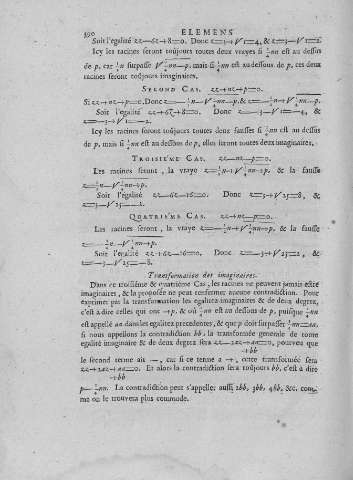 390 ELEMENS
Soit l'égalité zz—6z+8=0. Donc z=3+V1=4, & z=3—V1=2.
Icy les racines seront toujours toutes deux vrayes si ¼nn est au dessus
de p, car ½n surpasse V¼nn—p. mais si ¼nn est au dessous de p, ces deux
racines seront toûjours imaginaires.
SECOND CAS. zz+nz+p=0.
Si zz+nz+p=0. Donc z=—½n—V¼nn—p. & z=—½n+V¼nn—p.
Soit l'égalité zz+6z+8=0. Donc z=—3—V1=—4, &
z=—3+V1=—2.
Icy les racines seront toûjours toutes deux fausses si ¼nn est au dessus
de p, mais si ¼nn est au dessous de p, elles seront toutes deux imaginaires.
TROISIÉME CAS. zz—nz—p=0.
Les racines seront, la vraye z=½n+V¼nn+p. & la fausse
z=½n—V¼nn+p.
Soit l'égalité zz—6z—16=0. Donc z=3+V25=8, &
z=3—V25=—2.
QUATRIÉME CAS. zz+nz—p=0.
Les racines seront, la vraye z=—½n+V¼nn+p. & la fausse
z=—½n—V¼nn+p.
Soit l'égalité zz+6z—16=0. Donc z=—3+V25=2, &
z=—3—V25=—8.
Transformation des imaginaires.
Dans ce troisième & quatrième Cas, les racines ne peuvent jamais estre
imaginaires, & la proposée ne peut renfermer aucune contradiction. Pour
exprimer par la transformation les égalitez imaginaires & de deux degrez,
c'est à dire celles qui ont +p, & où ¼nn est au dessous de p, puisque ¼nn
est appellé an dans les égalitez precedentes, & que p doit surpasser ¼nn=an,
si nous appellons la contradiction bb, la transformée generale de toute
égalité imaginaire & de deux degrez sera zz—2az+aa=0, pourveu que
+bb
le second terme ait —, car si ce terme a +, cette transformée sera
zz+2az+aa=0. Et alors la contradiction sera toujours bb, c'est à dire
+bb
p—¼nn. La contradiction peut s'appeller aussi 2bb, 3bb, 4bb, &c. com-
me on le trouvera plus commode.